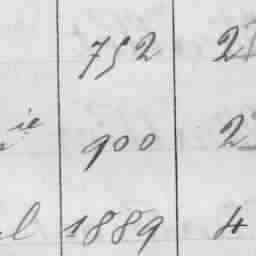 752 2
ie 900 2
l 1889 4